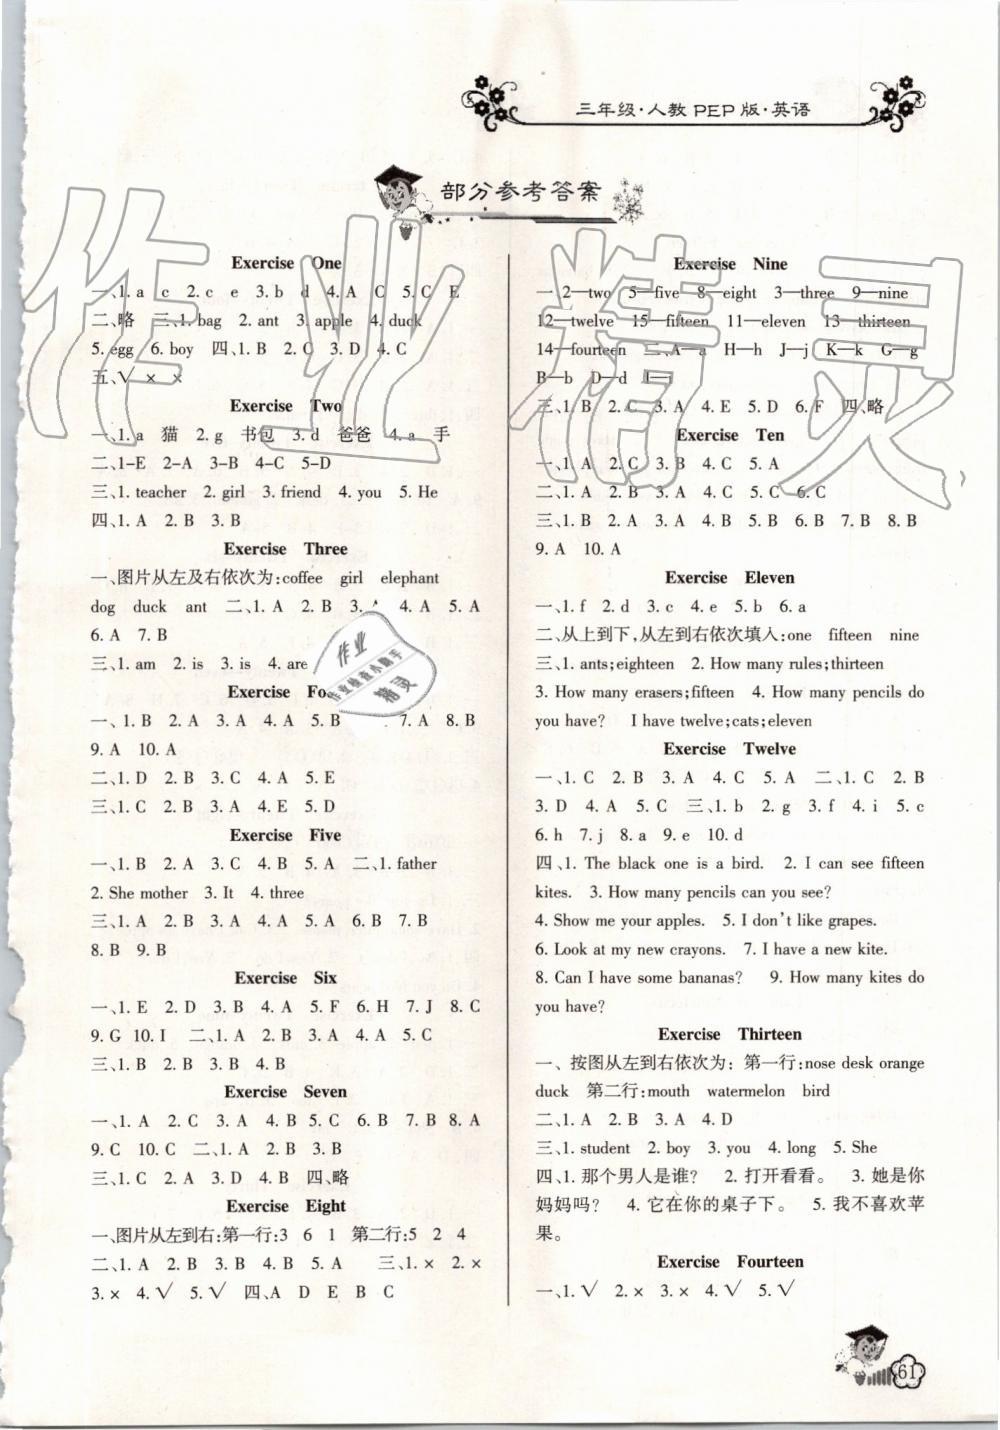 三年级·人教PEP版·英语
部分参考答案
Exercise One
一、1. a c 2. c e 3. b d 4. A C 5. C E
二、略 三、1. bag 2. ant 3. apple 4. duck
5. egg 6. boy 四、1. B 2. C 3. D 4. C
五、√ × ×
Exercise Two
一、1. a 猫 2. g 书包 3. d 爸爸 4. a 手
二、1-E 2-A 3-B 4-C 5-D
三、1. teacher 2. girl 3. friend 4. you 5. He
四、1. A 2. B 3. B
Exercise Three
一、图片从左及右依次为:coffee girl elephant
dog duck ant 二、1. A 2. B 3. 4. A 5. A
6. A 7. B
三、1. am 2. is 3. is 4. are
Exercise
一、1. B 2. A 3. A 4. A 5. B 7. A 8. B
9. A 10. A
二、1. D 2. B 3. C 4. A 5. E
三、1. C 2. B 3. A 4. E 5. D
Exercise Five
一、1. B 2. A 3. C 4. B 5. A 二、1. father
2. She mother 3. It 4. three
三、1. A 2. B 3. A 4. A 5. A 6. B 7. B
8. B 9. B
Exercise Six
一、1. E 2. D 3. B 4. A 5. F 6. H 7. J 8. C
9. G 10. I 二、1. A 2. B 3. A 4. A 5. C
三、1. B 2. B 3. B 4. B
Exercise Seven
一、1. A 2. C 3. A 4. B 5. C 6. B 7. B 8. A
9. C 10. C 二、1. A 2. B 3. B
三、1. C 2. A 3. D 4. B 四、略
Exercise Eight
一、图片从左到右:第一行:3 6 1 第二行:5 2 4
二、1. A 2. B 3. B 4. B 5. A 三、1. × 2. ×
3. × 4. √ 5. √ 四、A D E B C
Exercise Nine
一 2—two 5—five 8—eight 3—three 9—nine
12—twelve 15—fifteen 11—eleven 13—thirteen
14—fourteen 二、A—a H—h J—j K—k G—g
B—b D—d I—i
三、1. B 2. C 3. A 4. E 5. D 6. F 四、略
Exercise Ten
一、1. A 2. C 3. B 4. C 5. A
二、1. A 2. B 3. A 4. C 5. C 6. C
三、1. B 2. A 3. A 4. B 5. B 6. B 7. B 8. B
9. A 10. A
Exercise Eleven
一、1. f 2. d 3. c 4. e 5. b 6. a
二、从上到下,从左到右依次填入:one fifteen nine
三、1. ants;eighteen 2. How many rules;thirteen
3. How many erasers;fifteen 4. How many pencils do
you have? I have twelve;cats;eleven
Exercise Twelve
一、1. C 2. B 3. A 4. C 5. A 二、1. C 2. B
3. D 4. A 5. C 三、1. b 2. g 3. f 4. i 5. c
6. h 7. j 8. a 9. e 10. d
四、1. The black one is a bird. 2. I can see fifteen
kites. 3. How many pencils can you see?
4. Show me your apples. 5. I don't like grapes.
6. Look at my new crayons. 7. I have a new kite.
8. Can I have some bananas? 9. How many kites do
you have?
Exercise Thirteen
一、按图从左到右依次为: 第一行:nose desk orange
duck 第二行:mouth watermelon bird
二、1. A 2. B 3. A 4. D
三、1. student 2. boy 3. you 4. long 5. She
四、1. 那个男人是谁? 2. 打开看看。 3. 她是你
妈妈吗? 4. 它在你的桌子下。 5. 我不喜欢苹
果。
Exercise Fourteen
一、1. √ 2. × 3. × 4. √ 5. √
61
作业精灵
作业
作业检查小助手
精灵